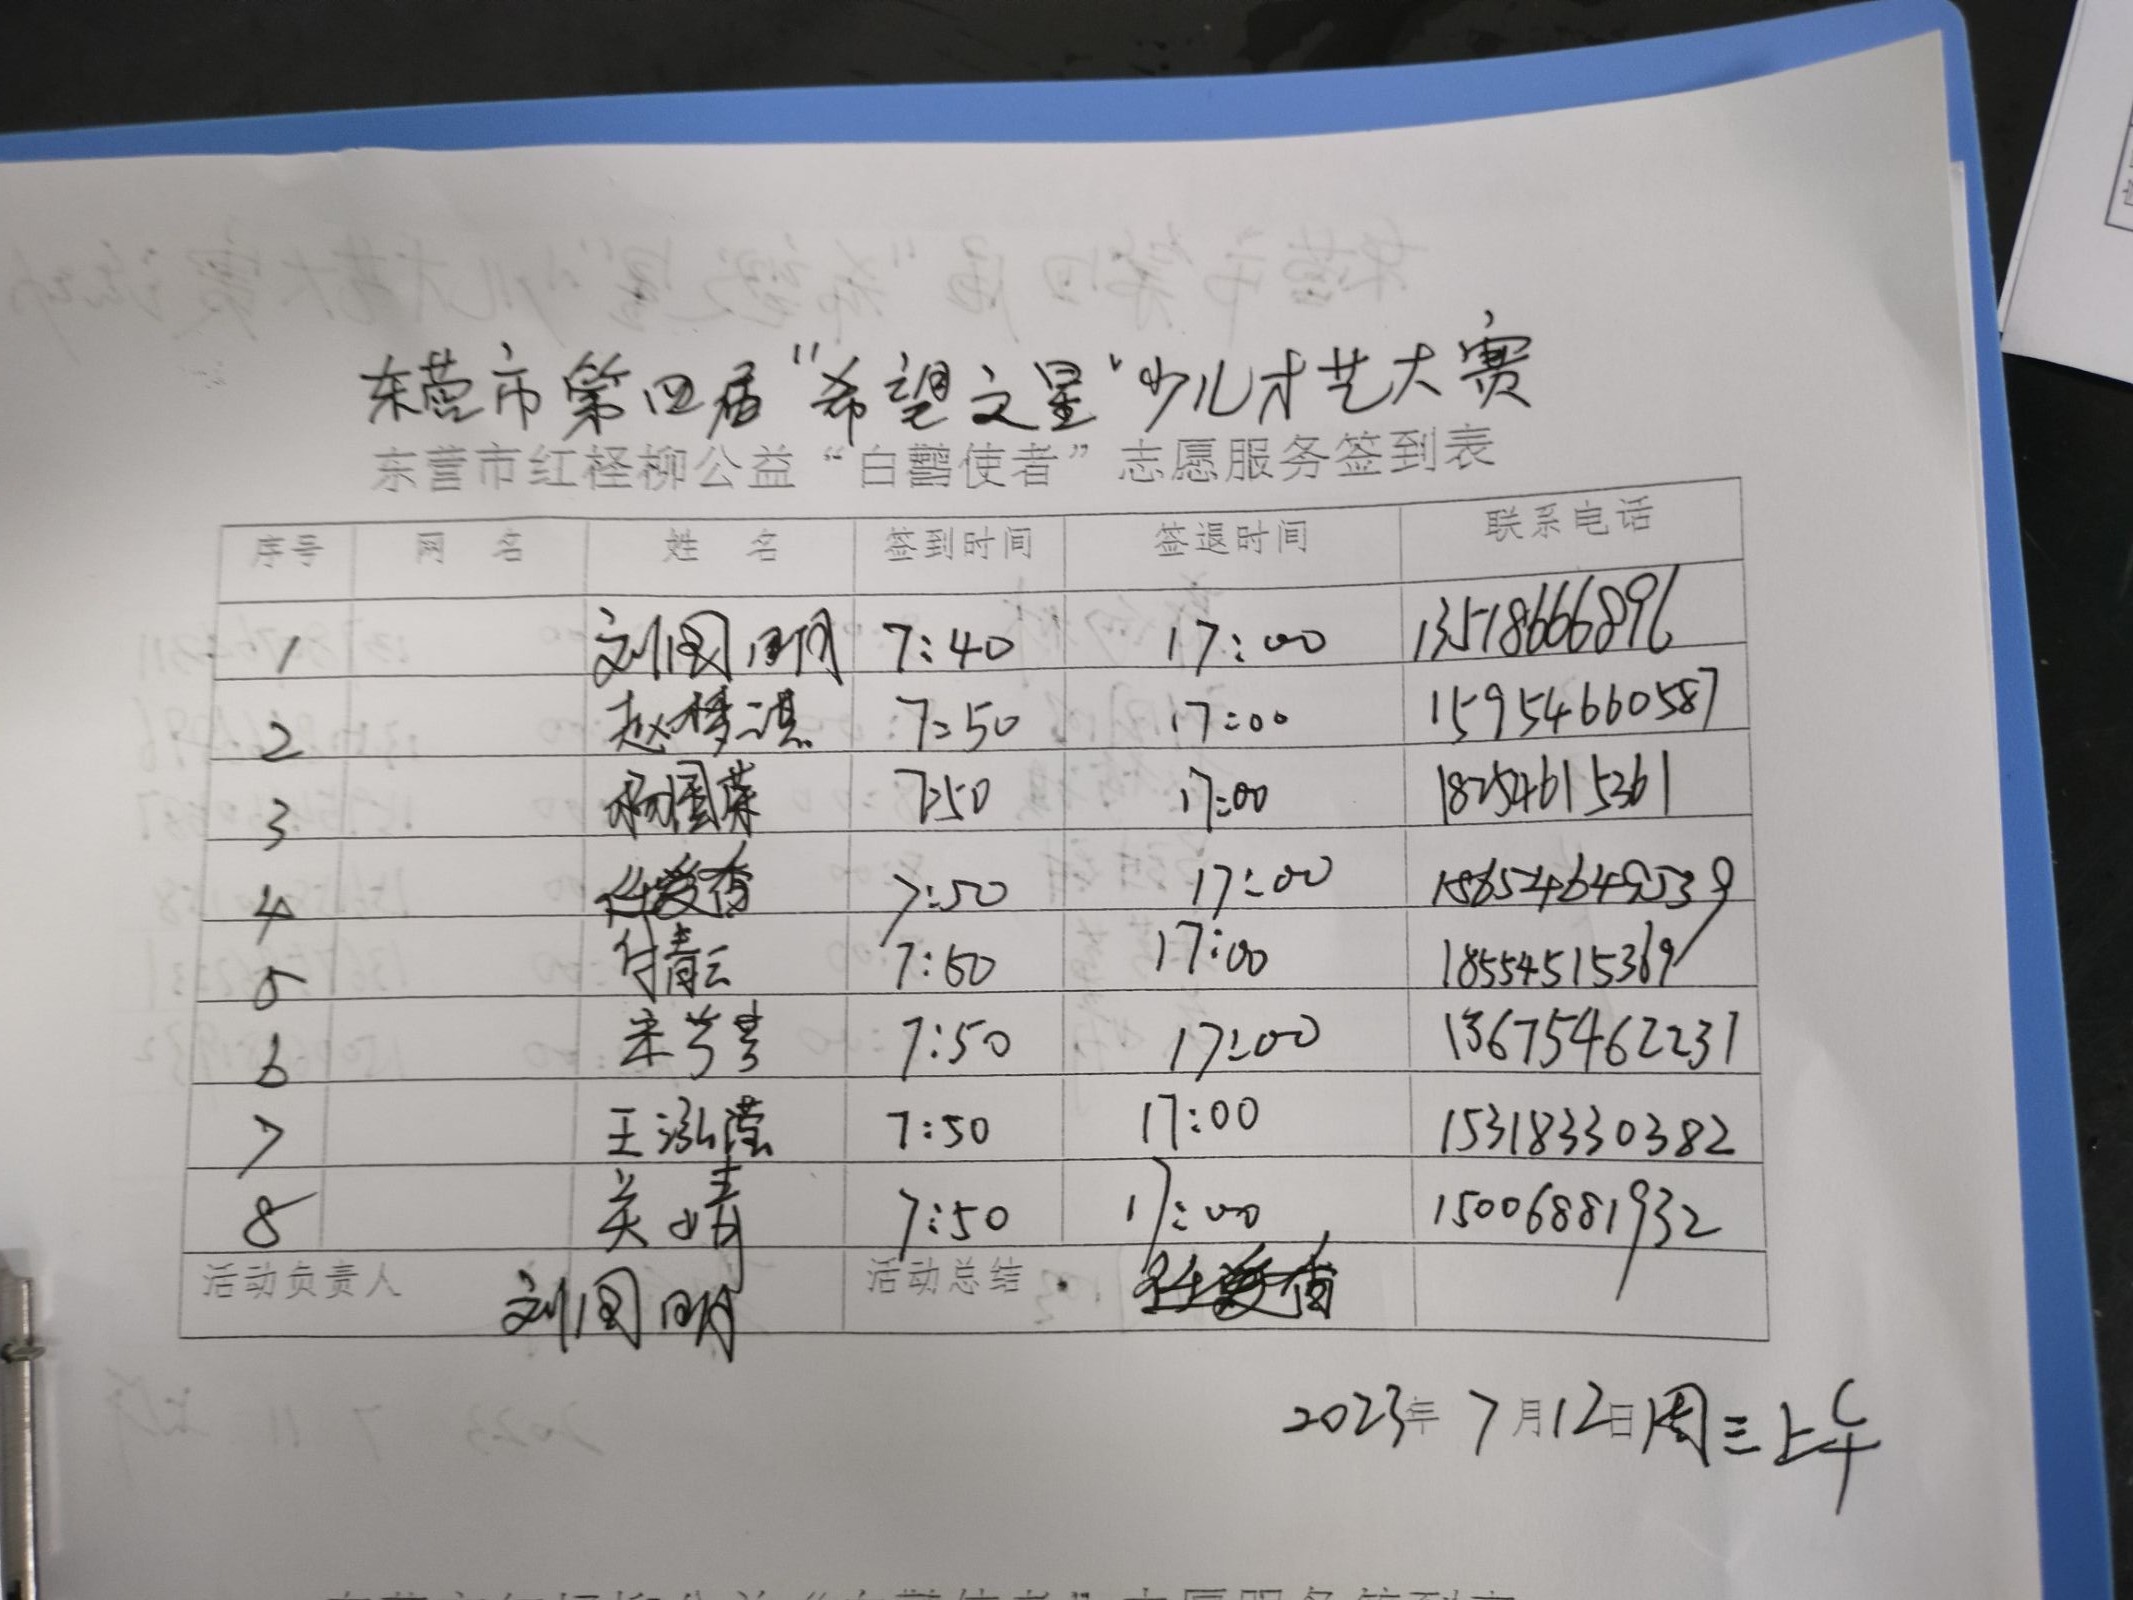 东营市第四届"希望之星"少儿才艺大赛
东营市红柽柳公益“白鹳使者”志愿服务签到表
序号 网 名 姓 名 签到时间 签退时间 联系电话
1 刘国明 7:40 17:00 13518666896
2 赵梦淇 7:50 17:00 15954660587
3 杨国荣 7:50 17:00 18254615361
4 任爱香 7:50 17:00
5 付青云 7:50 17:00 18554515369
6 宋芳芳 7:50 17:00 13675462231
7 王泓滢 7:50 17:00 15318330382
8 关婧 7:50 17:00 15006881932
活动负责人 刘国明 活动总结 任爱香
2023年7月12日周三上午